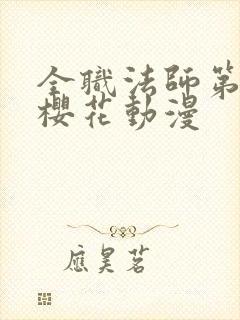 全職法師第
櫻花動漫
應昊茗